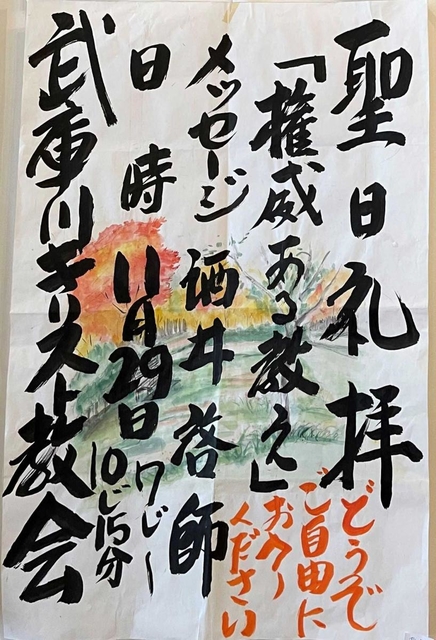 聖日礼拝
どうぞ
ご自由に
お入り
ください
「権威ある教え」
メッセージ 酒井啓師
日時 11月29日
10じ15分
武庫川キリスト教会